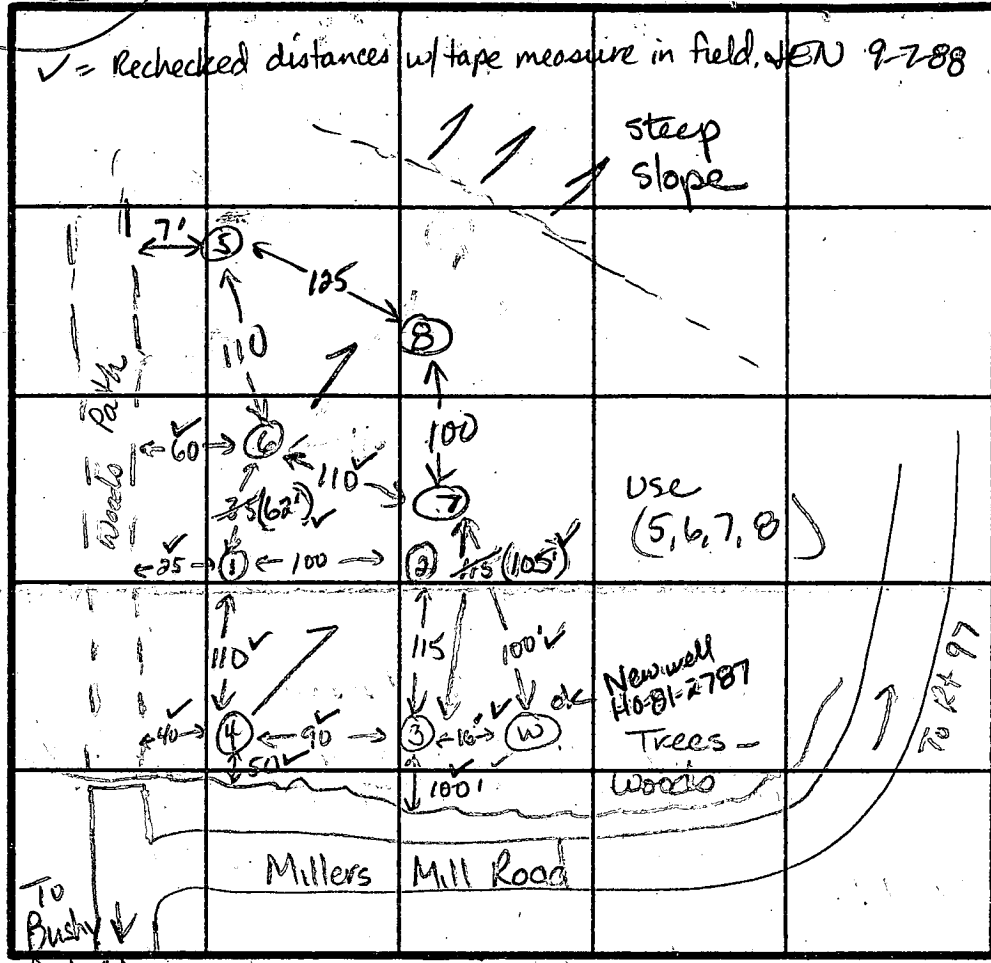 ✓ = Rechecked distances w/ tape measure in field. JEN 9-7-88
steep
slope
7'
5
125
8
110
Woods Path
60 ✓
6
100
110 ✓
7
(62') ✓
use
(5,6,7,8)
25 ✓
1
100
2
115 (105') ✓
110 ✓
115
100' ✓
ok
New well
HO-81-2787
40 ✓
4
90 ✓
3
16' ✓
W
Trees -
woods
50 ✓
100' ✓
To Rt 97
Millers Mill Road
To
Bushy